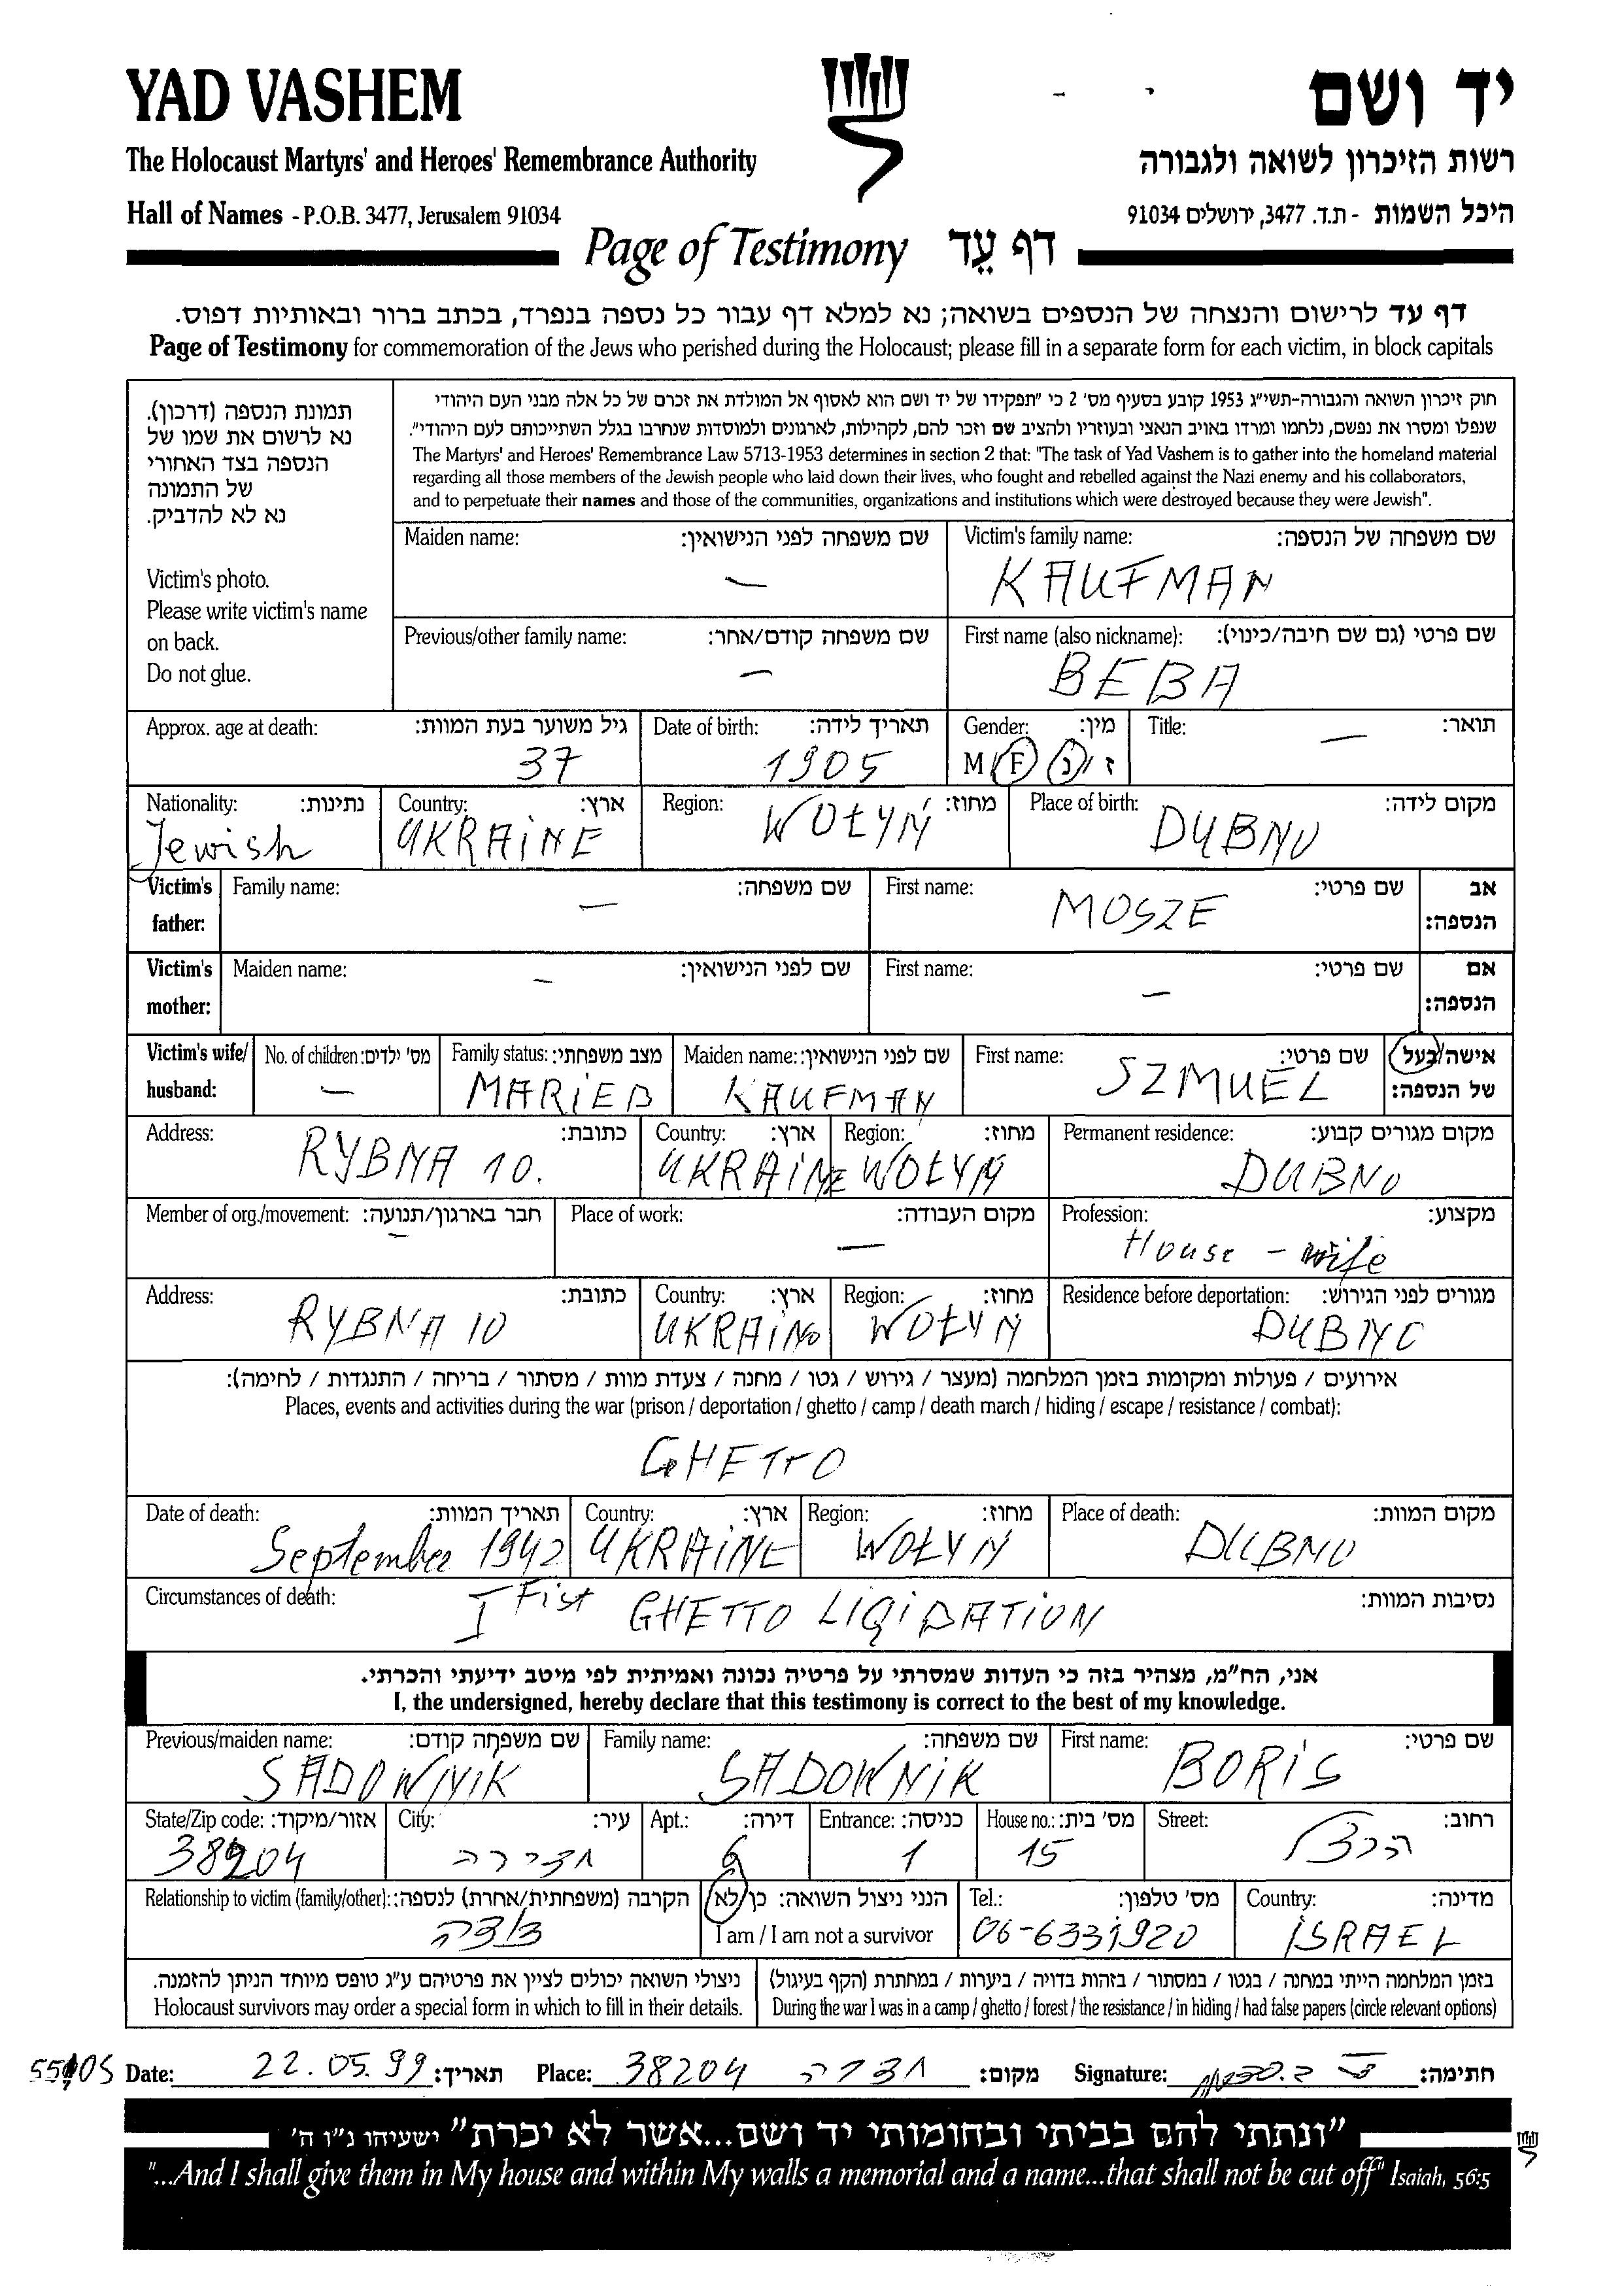 YAD VASHEM
יד ושם
The Holocaust Martyrs' and Heroes' Remembrance Authority
רשות הזיכרון לשואה ולגבורה
Hall of Names - P.O.B. 3477, Jerusalem 91034
היכל השמות - ת.ד. 3477, ירושלים 91034
Page of Testimony דף עֵד
דף עד לרישום והנצחה של הנספים בשואה; נא למלא דף עבור כל נספה בנפרד, בכתב ברור ובאותיות דפוס.
Page of Testimony for commemoration of the Jews who perished during the Holocaust; please fill in a separate form for each victim, in block capitals
תמונת הנספה (דרכון).
נא לרשום את שמו של
הנספה בצד האחורי
של התמונה
נא לא להדביק.
Victim's photo.
Please write victim's name
on back.
Do not glue.
חוק זיכרון השואה והגבורה-תשי"ג 1953 קובע בסעיף מס' 2 כי "תפקידו של יד ושם הוא לאסוף אל המולדת את זכרם של כל אלה מבני העם היהודי
שנפלו ומסרו את נפשם, נלחמו ומרדו באויב הנאצי ובעוזריו ולהציב שם וזכר להם, לקהילות, לארגונים ולמוסדות שנחרבו בגלל השתייכותם לעם היהודי".
The Martyrs' and Heroes' Remembrance Law 5713-1953 determines in section 2 that: "The task of Yad Vashem is to gather into the homeland material
regarding all those members of the Jewish people who laid down their lives, who fought and rebelled against the Nazi enemy and his collaborators,
and to perpetuate their names and those of the communities, organizations and institutions which were destroyed because they were Jewish".
Maiden name: שם משפחה לפני הנישואין: Victim's family name: שם משפחה של הנספה:
– KAUFMAN
Previous/other family name: שם משפחה קודם/אחר: First name (also nickname): שם פרטי (גם שם חיבה/כינוי):
– BEBA
Approx. age at death: גיל משוער בעת המוות: Date of birth: תאריך לידה: Gender: מין: Title: תואר:
37 1905 M/F ז/נ –
Nationality: נתינות: Country: ארץ: Region: מחוז: Place of birth: מקום לידה:
Jewish UKRAINE WOŁYŃ DUBNO
Victim's father: Family name: שם משפחה: First name: שם פרטי: אב הנספה:
– MOSZE
Victim's mother: Maiden name: שם לפני הנישואין: First name: שם פרטי: אם הנספה:
– –
Victim's wife/ husband: No. of children: מס' ילדים: Family status: מצב משפחתי: Maiden name: שם לפני הנישואין: First name: שם פרטי: אישה/בעל של הנספה:
– MARIED KAUFMAN SZMUEL
Address: כתובת: Country: ארץ: Region: מחוז: Permanent residence: מקום מגורים קבוע:
RYBNA 10. UKRAINE WOŁYŃ DUBNO
Member of org./movement: חבר בארגון/תנועה: Place of work: מקום העבודה: Profession: מקצוע:
– – House - wife
Address: כתובת: Country: ארץ: Region: מחוז: Residence before deportation: מגורים לפני הגירוש:
RYBNA 10 UKRAINE WOŁYŃ DUBNO
אירועים / פעולות ומקומות בזמן המלחמה (מעצר / גירוש / גטו / מחנה / צעדת מוות / מסתור / בריחה / התנגדות / לחימה):
Places, events and activities during the war (prison / deportation / ghetto / camp / death march / hiding / escape / resistance / combat):
GHETTO
Date of death: תאריך המוות: Country: ארץ: Region: מחוז: Place of death: מקום המוות:
September 1942 UKRAINE WOŁYŃ DUBNO
Circumstances of death: נסיבות המוות:
I Fist GHETTO LIQIDATION
אני, הח"מ, מצהיר בזה כי העדות שמסרתי על פרטיה נכונה ואמיתית לפי מיטב ידיעתי והכרתי.
I, the undersigned, hereby declare that this testimony is correct to the best of my knowledge.
Previous/maiden name: שם משפחה קודם: Family name: שם משפחה: First name: שם פרטי:
SADOWNIK SADOWNIK BORIS
State/Zip code: אזור/מיקוד: City: עיר: Apt.: דירה: Entrance: כניסה: House no.: מס' בית: Street: רחוב:
38204 חדירה 6 1 15
Relationship to victim (family/other): הקרבה (משפחתית/אחרת) לנספה: הנני ניצול השואה: כן/לא Tel.: מס' טלפון: Country: מדינה:
דודה I am / I am not a survivor 06-6331920 ISRAEL
ניצולי השואה יכולים לציין את פרטיהם ע"ג טופס מיוחד הניתן להזמנה.
Holocaust survivors may order a special form in which to fill in their details.
בזמן המלחמה הייתי במחנה / בגטו / במסתור / בזהות בדויה / ביערות / במחתרת (הקף בעיגול)
During the war I was in a camp / ghetto / forest / the resistance / in hiding / had false papers (circle relevant options)
Date: 22.05.99 תאריך: Place: 38204 חדרה מקום: Signature: חתימה:
"ונתתי להם בביתי ובחומותי יד ושם...אשר לא יכרת" ישעיהו נ"ו ה'
"...And I shall give them in My house and within My walls a memorial and a name...that shall not be cut off" Isaiah, 56:5